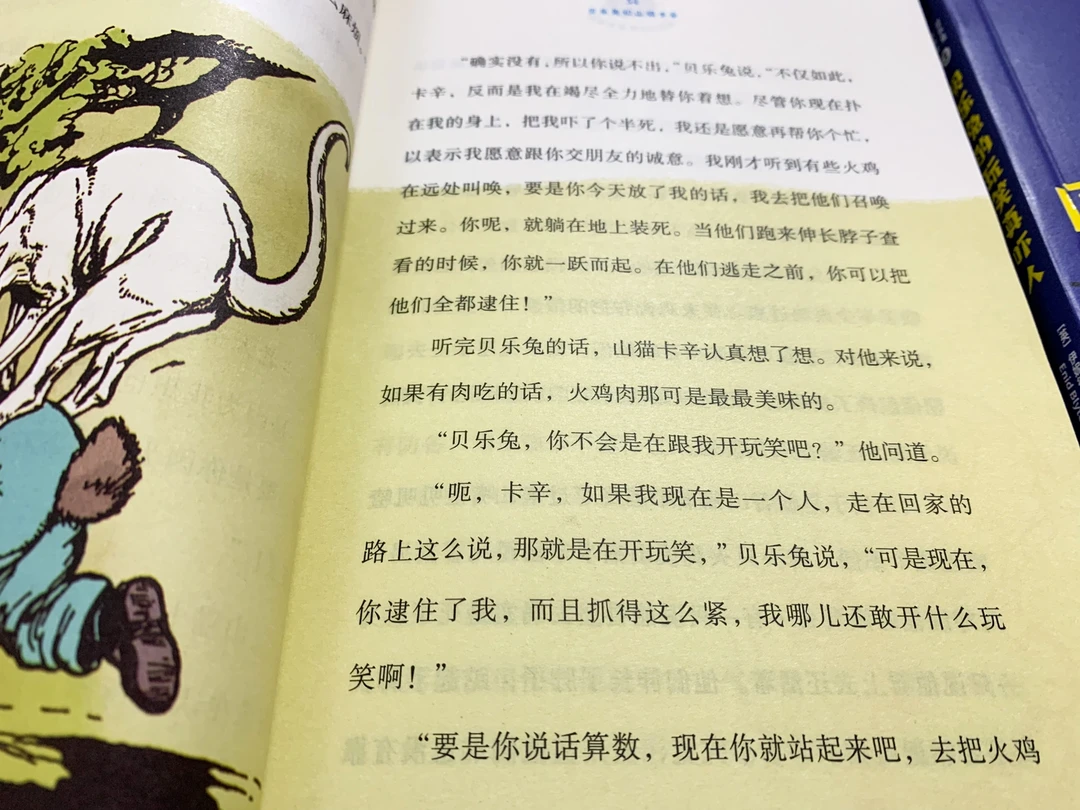 “确实没有，所以你说不出，”贝乐兔说，“不仅如此，
卡辛，反而是我在竭尽全力地替你着想。尽管你现在扑
在我的身上，把我吓了个半死，我还是愿意再帮你个忙，
以表示我愿意跟你交朋友的诚意。我刚才听到有些火鸡
在远处叫唤，要是你今天放了我的话，我去把他们召唤
过来。你呢，就躺在地上装死。当他们跑来伸长脖子查
看的时候，你就一跃而起。在他们逃走之前，你可以把
他们全都逮住！”
听完贝乐兔的话，山猫卡辛认真想了想。对他来说，
如果有肉吃的话，火鸡肉那可是最最美味的。
“贝乐兔，你不会是在跟我开玩笑吧？”他问道。
“呃，卡辛，如果我现在是一个人，走在回家的
路上这么说，那就是在开玩笑，”贝乐兔说，“可是现在，
你逮住了我，而且抓得这么紧，我哪儿还敢开什么玩
笑啊！”
“要是你说话算数，现在你就站起来吧，去把火鸡
的玩笑真吓人
Enid Bly